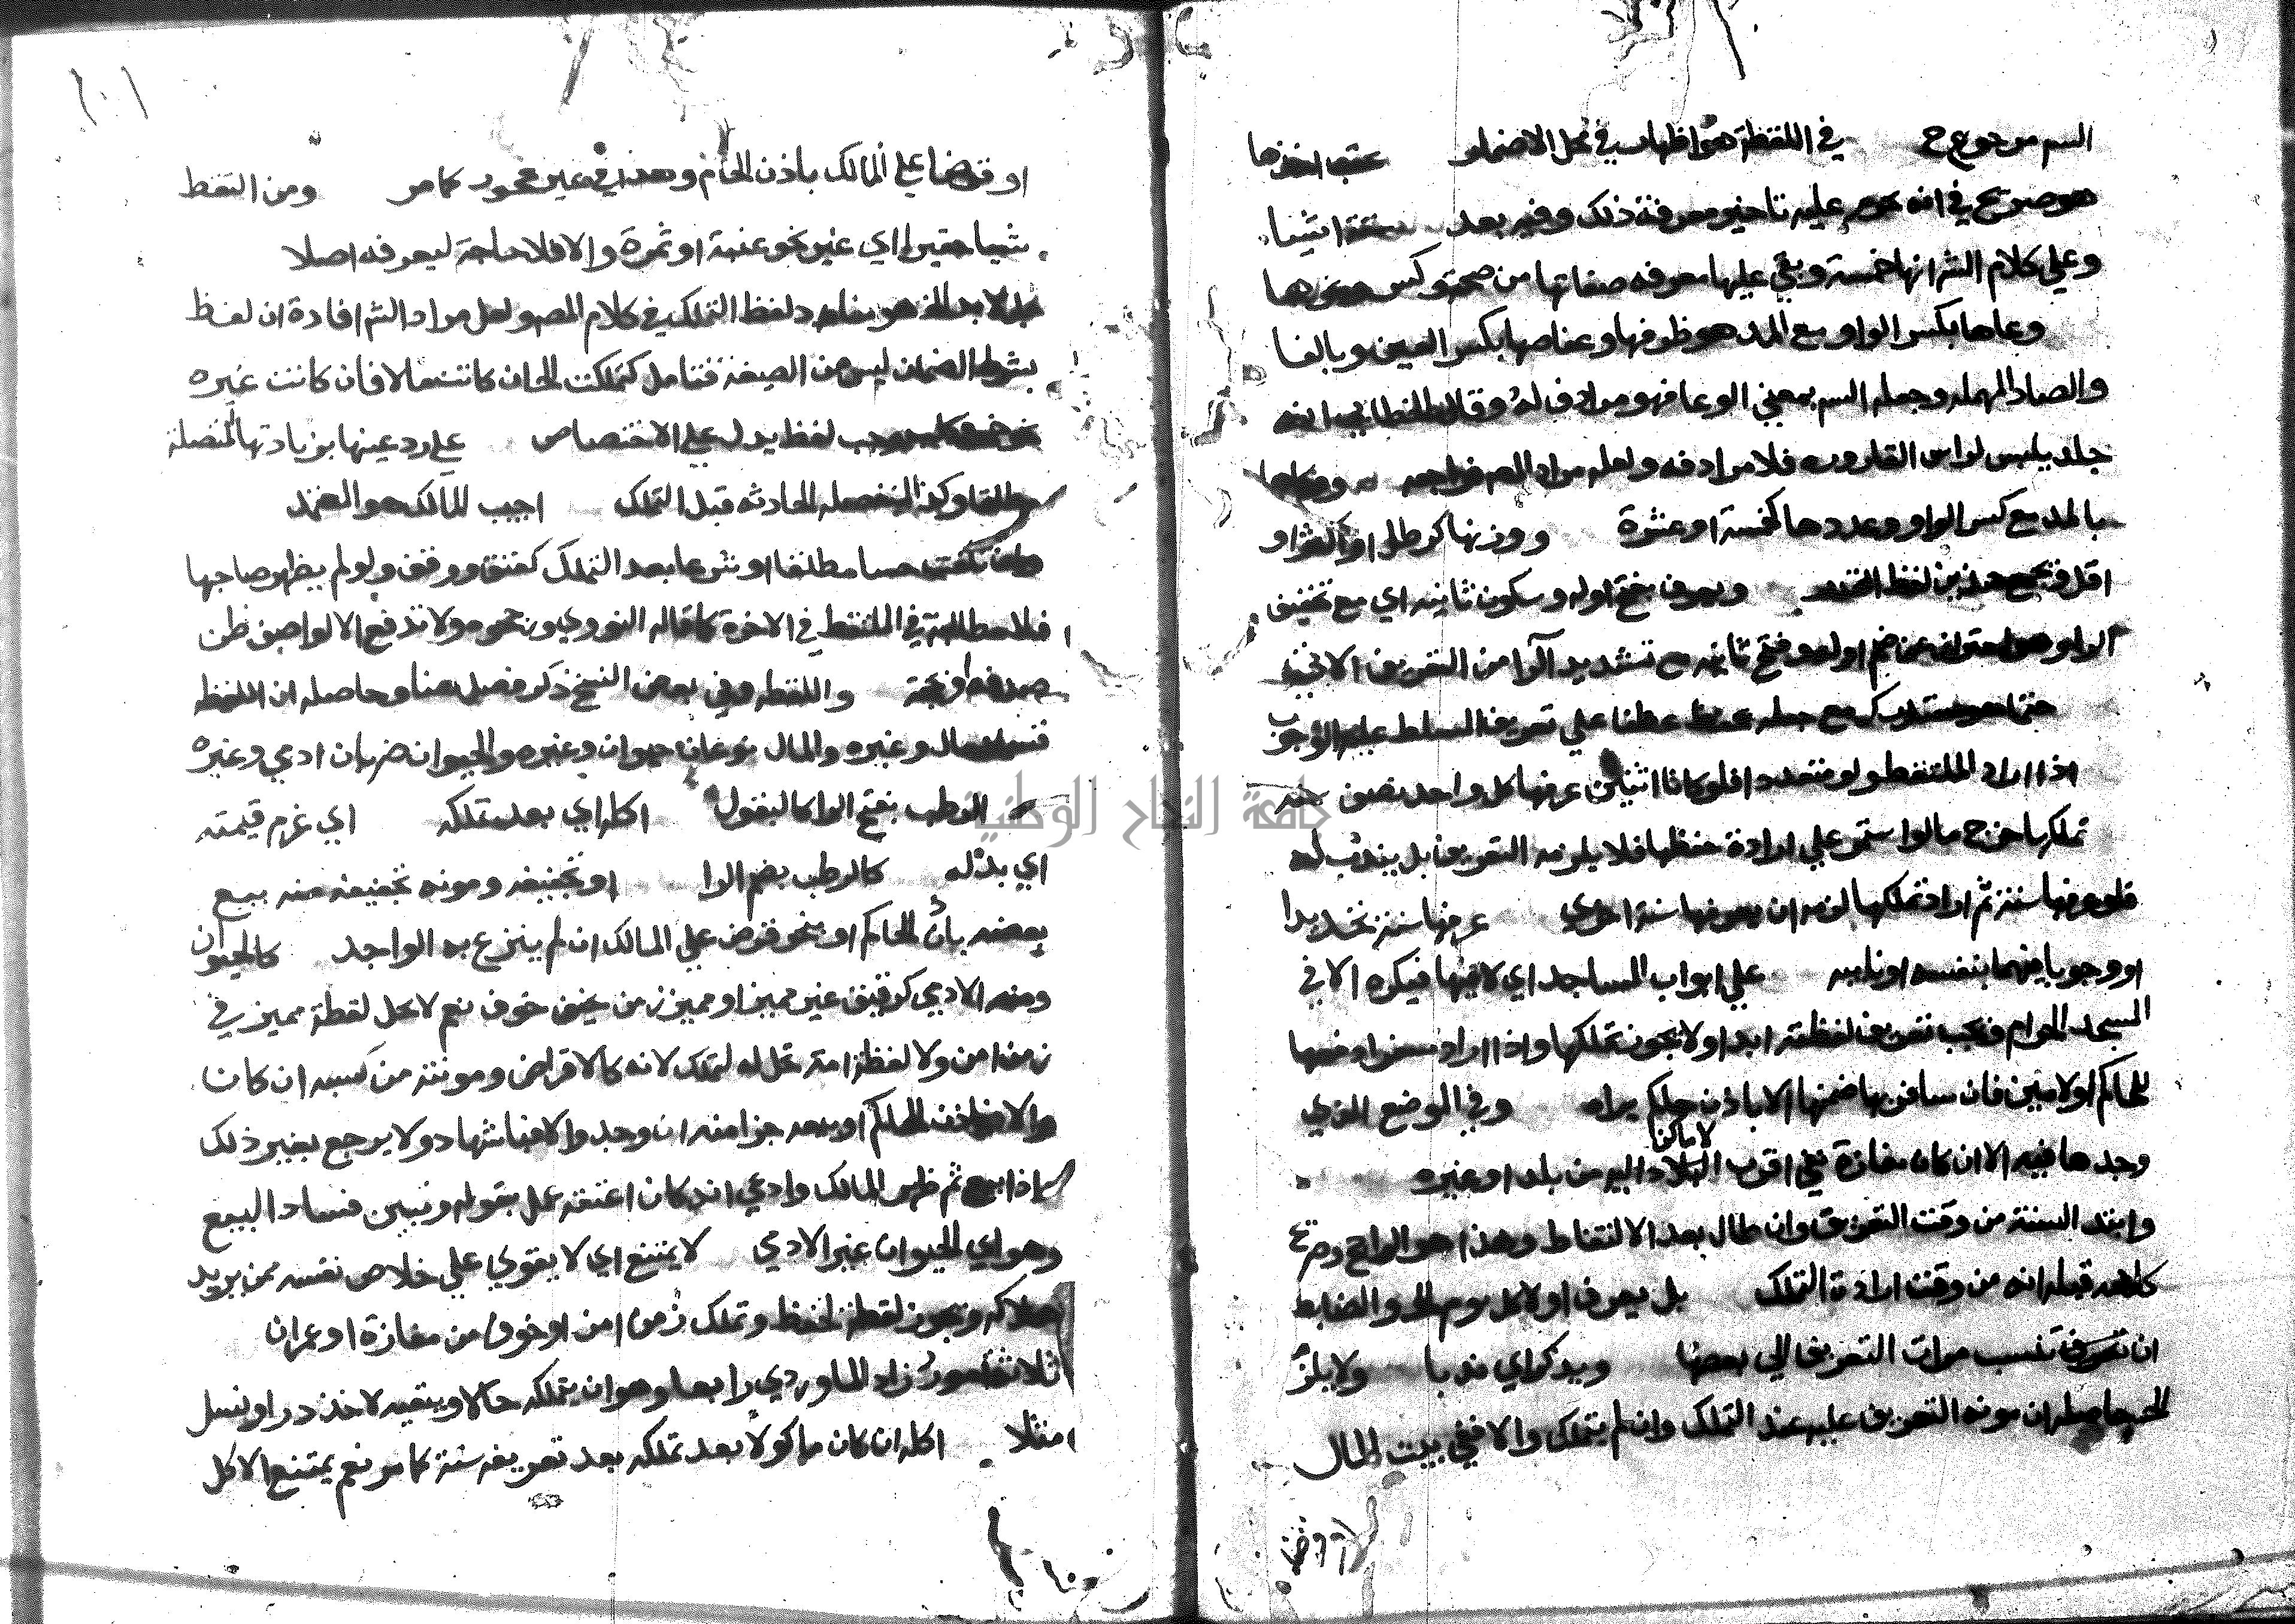 الشم مرجوع ح في اللقطة هو اظهار في محل الاضمار عقب اخذها
هو صريح في انه عليه تاخير معرفة ذلك وفيه بعد ستة اشيا
وعلي كلام الشر انها خمسة وبقي عليها معرفه صفاتها من صحة وكسر ونحوها
وعاها بكسر الواو مع المد هو ظرفها وعفاصها بكسر العين وبالفا
والصاد المهمله وجعله الشم بمعني الوعا فهو مرادف له وقال الخطابي انه
جلد يلبس لراس القاروره فلا مرادفه ولعله مراد المص فراجعه ووكاها
بالمد مع كسر الواو وعددها كخمسة او عشرة ووزنها كرطل او اكثر او
اقل ويعرف بفتح اوله وسكون ثانيه اي مع تخفيف
الرا وهو احتراز عن ضم اوله وفتح ثانيه مع تشديد الرا من التعريف الاتي
حتما مع عطفا علي تعريف المسلط عليه الوجوب
اذا اراد الملتقط ولو متعددا فلو كانا اثنين عرفها كل واحد نصف سنه
تملكها خرج ما لو استمر علي ارادة حفظها فلا يلزمه التعريف بل يندب له
فلو عرفها سنة ثم اراد تملكها لزمه ان يعرفها سنة اخري عرفها سنة تحديدا
ووجوبا فيهما بنفسه او نايبه علي ابواب المساجد اي لا فيها فيكره الا في
المسجد الحرام ويجب تعريف لقطته ابدا ولا يجوز تملكها واذا اراد سفرا دفعها
للحاكم او لامين فان سافر بها ضمنها الا باذن حاكم يراه وفي الموضع الذي
لاماكن
وجدها فيه الا ان كان مفازة ففي اقرب البلاد اليه من بلد او غيره
وابتدا السنة من وقت التعريف وان طال بعد الالتقاط وهذا هو الراجح
كلامه قبله انه من وقت ارادة التملك بل يعرف اولا كل يوم الخ والضابط
ان تعرف تنسب مرات التعريف الي بعضها ويذكر اي ندبا ولا يلز
الخ حاصله ان مونه التعريف عليه عند التملك وان لم يتملك والا ففي بيت المال
او قرضا
٢٠١
او قرضا علي المالك باذن الحاكم وهذا في غير محجور كما مر ومن التقط
شيا حقيرا اي غير نحو عنبة او ثمرة والا فلا حاجة لتعريفه اصلا
بل لا بد الخ هو مفاد لفظ التملك في كلام المص ولعل مراد الشم افادة ان لفظ
بشرط الضمان ليس من الصيغه فتامل كتملكت الخ ان كانت مالا فان كانت غيره
وجب لفظ يدل علي الاختصاص علي رد عينها بزيادتها المتصلة
مطلقا وكذا المنفصله الحادثه قبل التملك اجيب المالك هو المعتمد
وان تلفت حسا مطلقا او شرعا بعد التملك كعتق ووقف ولو لم يظهر صاحبها
فلا مطالبة في الملتقط في الاخرة كما قاله النووي ونحوه ولا تدفع الا لواصف ظن
صدقه او بحجة واللقطه وفي بعض النسخ ذكر فصل هنا وحاصله ان اللقطه
قسمان مال وغيره والمال نوعان حيوان وغيره والحيوان ضربان ادمي وغيره
الرطب بفتح الرا كالبقول اكله اي بعد تملكه اي غرم قيمته
اي بدله كالرطب بضم الرا او تجفيفه ومونه تجفيفه منه ببيع
بعضه باذن الحاكم او بنحو قرض علي المالك ان لم يتبرع به الواجد كالحيوان
ومنه الادمي كرقيق غير مميز او مميز زمن خوف نعم لا تحل لقطة مميز في
زمن امن ولا لقطة امة تحل له لتملك لانه كالاقراض ومونته من كسبه ان كان
والا فباذن الحاكم او ببعه جزا منه ان وجد والا فباشهاد ولا يرجع بغير ذلك
اذا بيع ثم ظهر المالك وادعي انه كان اعتقه عمل بقوله وتبين فساد البيع
وهو اي الحيوان غير الادمي لا يمتنع اي لا يقوي علي خلاص نفسه ممن يريد
هلاكه ويجوز لقطه لحفظ وتملك زمن امن او خوف من مفازة او عمران
ثلاثة امور زاد الماوردي رابعا وهو ان يتملكه حالا ويبقيه لاخذ در او نسل
مثلا اكله ان كان ماكولا بعد تملكه بعد تعريفه سنة كما مر نعم يمتنع الاكل
جامعة النجاح الوطنية